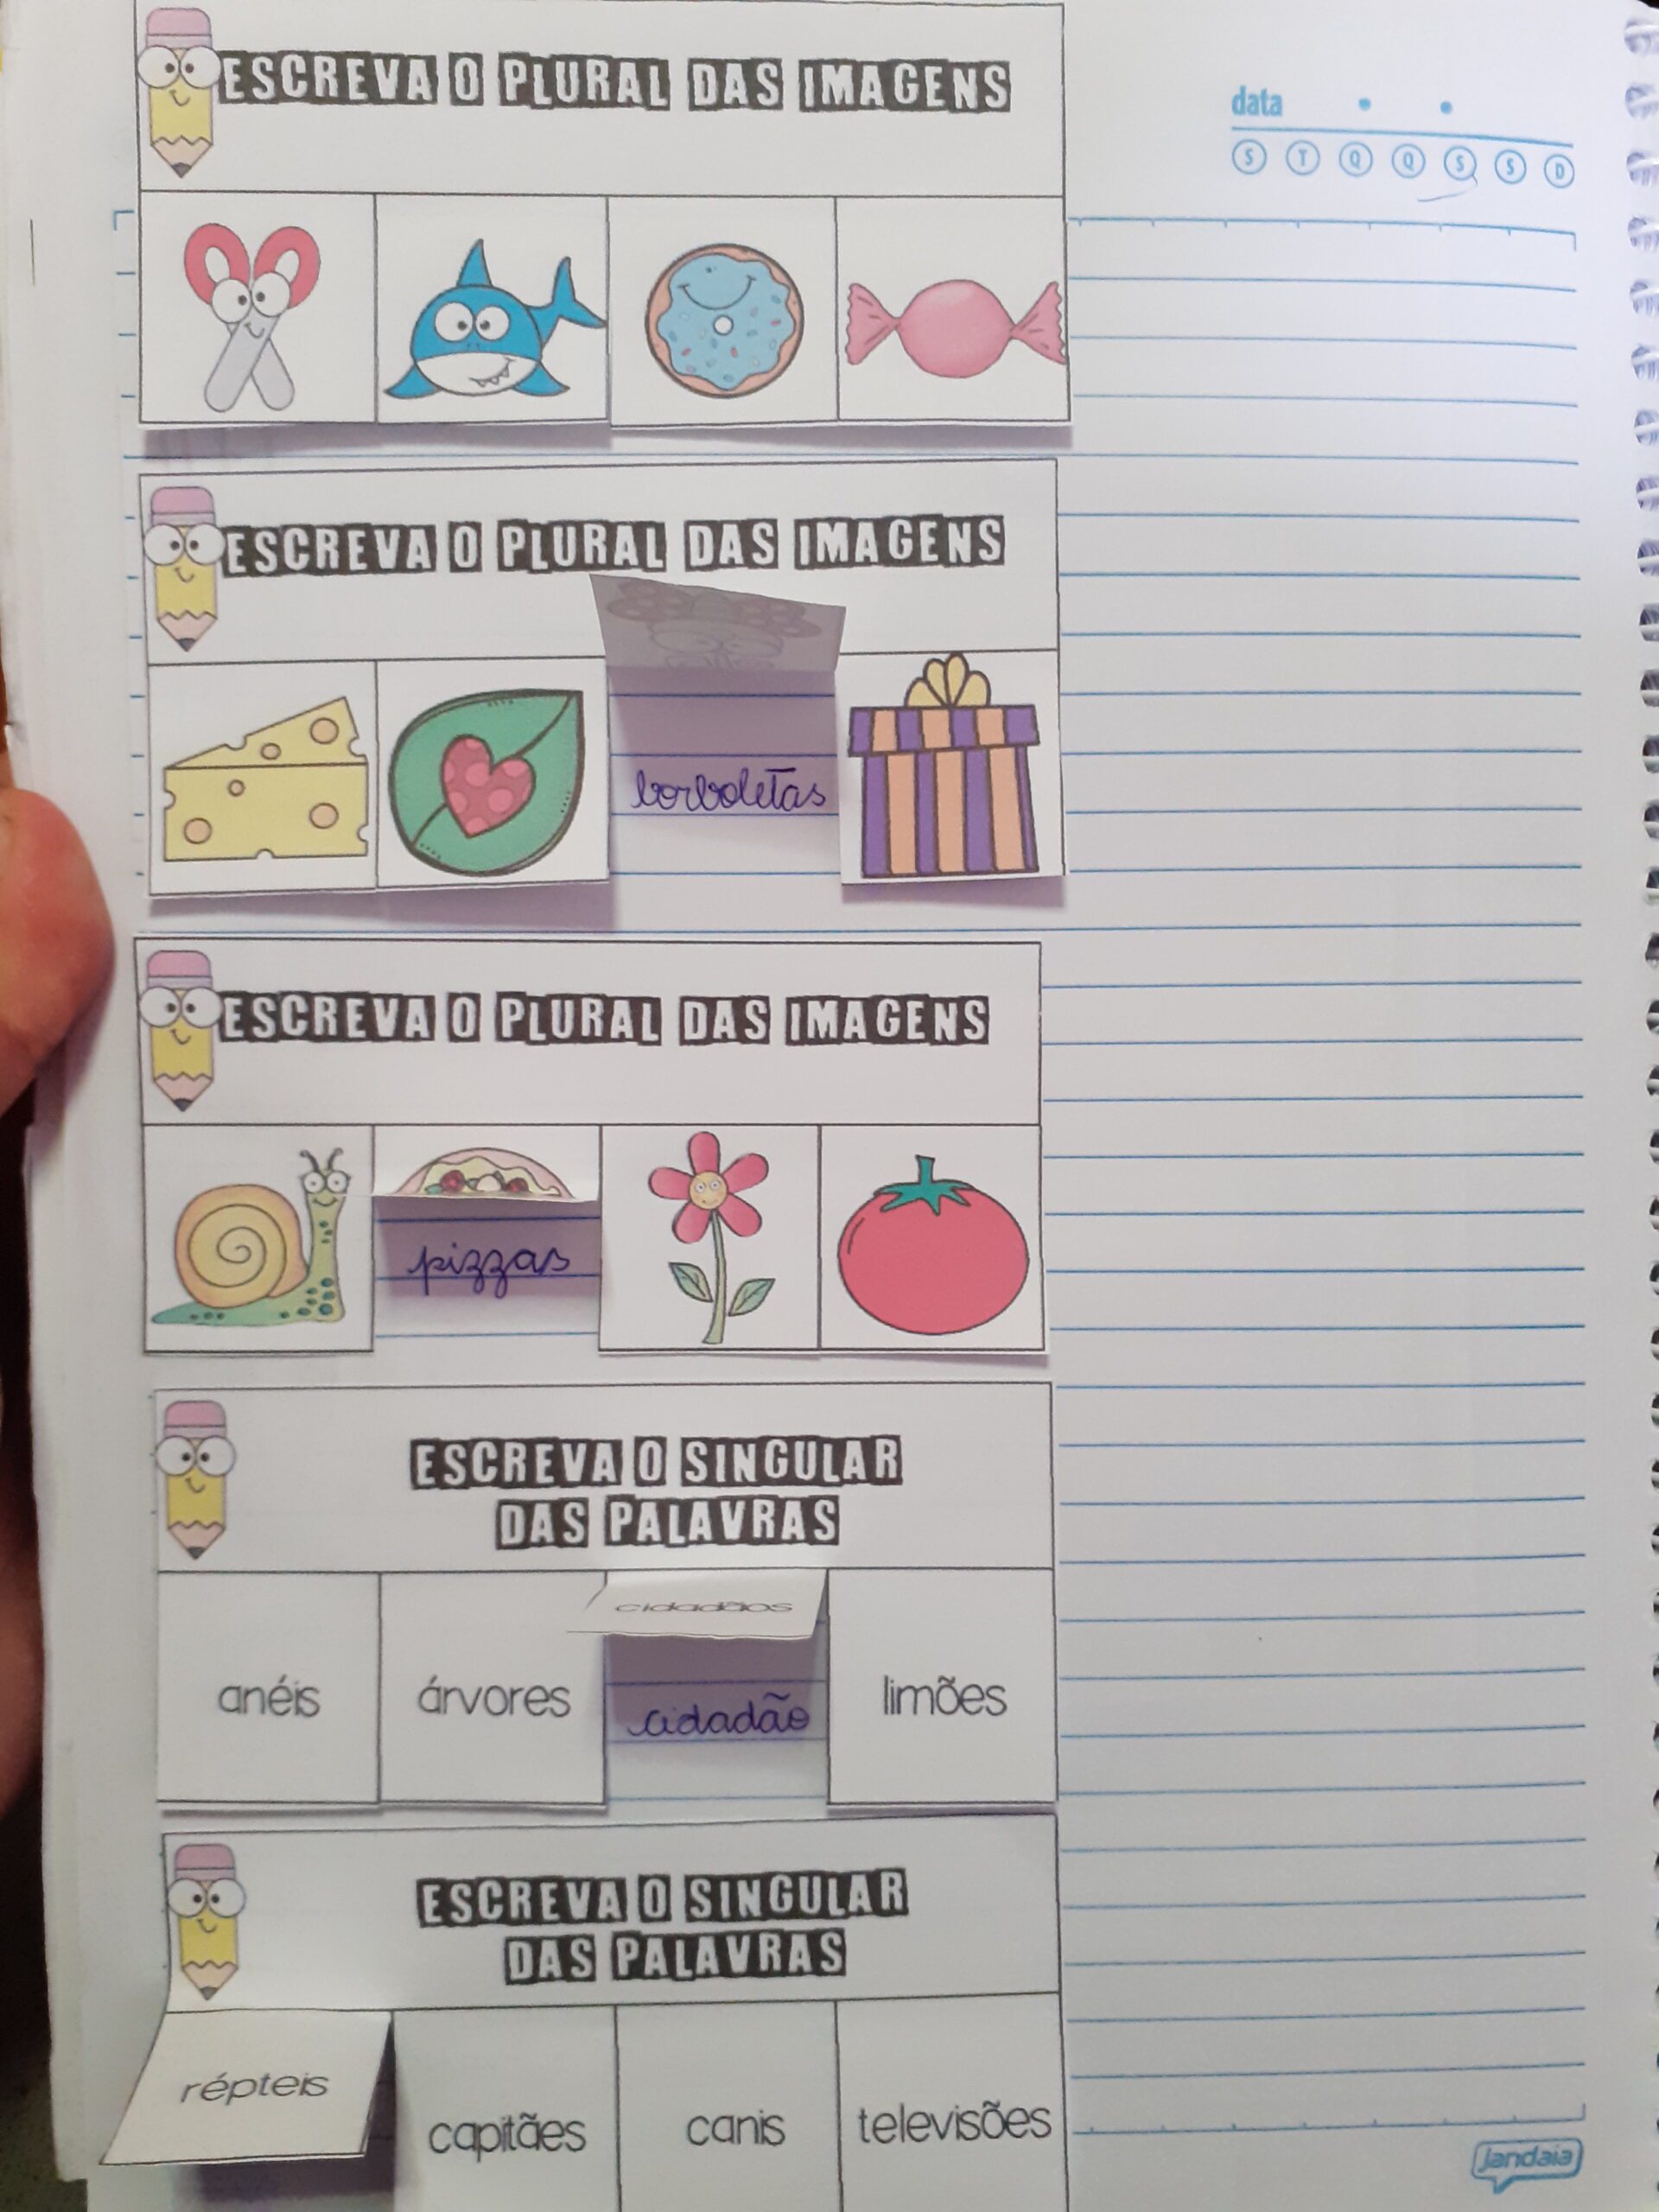 ESCREVA O PLURAL DAS IMAGENS
data
S T Q Q S S D
ESCREVA O PLURAL DAS IMAGENS
borboletas
ESCREVA O PLURAL DAS IMAGENS
pizzas
ESCREVA O SINGULAR
DAS PALAVRAS
cidadãos
anéis árvores cidadão limões
ESCREVA O SINGULAR
DAS PALAVRAS
répteis capitães canis televisões
jandaia